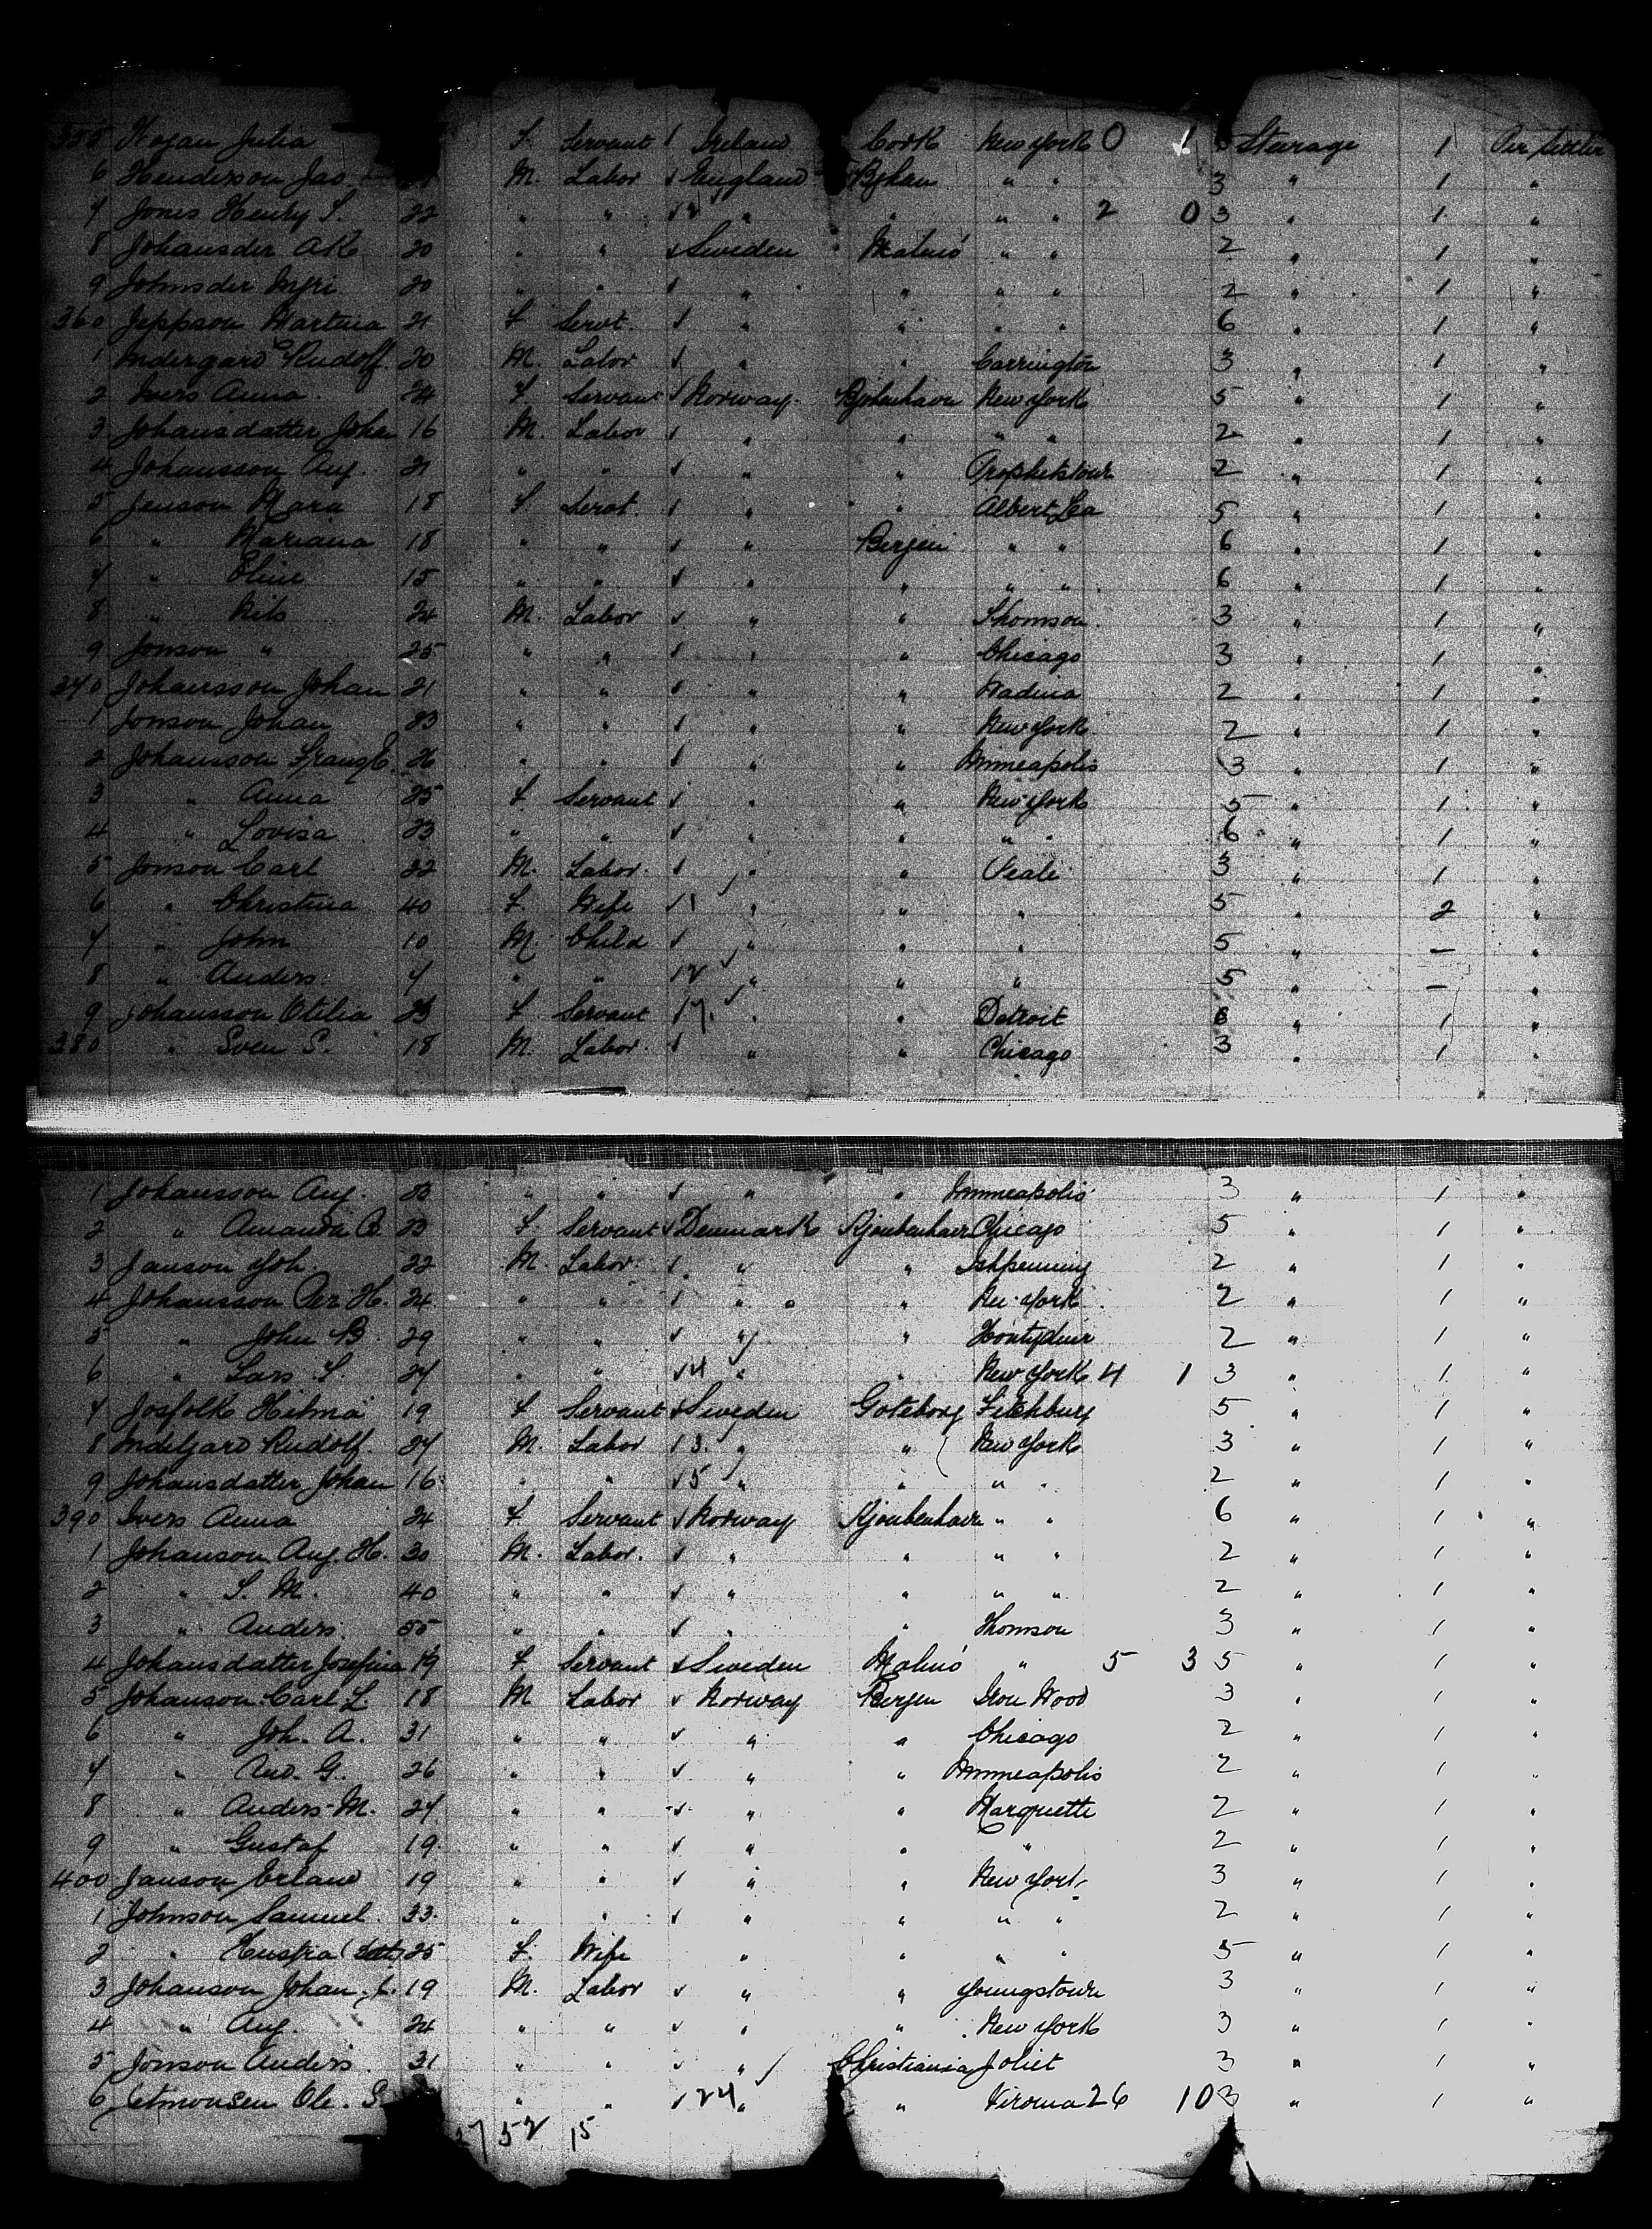 355 Hogan Julia F. Servant 1 Ireland Cork New York 0 1 5 Stearage 1 Per Settler
6 Henderson Jas. M. Labor 1 England 3 " 1 "
7 Jones Henry S. 22 " " " " " " 2 0 3 " 1 "
8 Johansder AK 20 " " Sweden Malmö " " 2 " 1 "
9 Johnsder Ingri 20 " " " " " " 2 " 1 "
360 Jeppson Martina 21 F Servt. " " " " 6 " 1 "
1 Indergard Rudolf 20 M. Labor " " Carrington 3 " 1 "
2 Ivers Anna 24 F Servant Norway Kjobenhavn New York 5 " 1 "
3 Johansdatter Johan 16 M. Labor " " " " 2 " 1 "
4 Johansson Aug. 21 " " " " Prophetstown 2 " 1 "
5 Jenson Mara 18 F Servt. " " Albert Lea 5 " 1 "
6 " Mariana 18 " " " Bergen " " 6 " 1 "
7 " Oline 15 " " " " " " 6 " 1 "
8 " Nils 24 M. Labor " " Thomson 3 " 1 "
9 Jonson " 25 " " " " Chicago 3 " 1 "
370 Johansson Johan 21 " " " " Wadena 2 " 1 "
1 Jonson Johan 23 " " " " New York 2 " 1 "
2 Johansson Frans E. 26 " " " " Minneapolis 3 " 1 "
3 " Anna 25 F Servant " " New York 5 " 1 "
4 " Lovisa 23 " " " " " " 6 " 1 "
5 Jonson Carl 22 M. Labor " " Peale 3 " 1 "
6 " Christina 40 F Wife " " " 5 " 2 "
7 " John 10 M. Child " " " 5 " — "
8 " Anders 7 " " " " " 5 " — "
9 Johansson Otilia 23 F Servant " " Detroit 6 " 1 "
380 " Sven S. 18 M. Labor " " Chicago 3 " 1 "
1 Johansson Aug. 23 " " " " Minneapolis 3 " 1 "
2 " Amanda C. 23 F Servant Denmark Kjoubenhavn Chicago 5 " 1 "
3 Janson Joh. 22 M. Labor " " Ishpeming 2 " 1 "
4 Johansson Per H. 24 " " " " New York 2 " 1 "
5 " John B. 29 " " " " 2 " 1 "
6 " Lars S. 27 " " 4 " " New York 4 1 3 " 1 "
7 Josfolk Hilma 19 F Servant Sweden Goteborg Fitchburg 5 " 1 "
8 Indelgard Rudolf 27 M. Labor 3 " " New York 3 " 1 "
9 Johansdatter Johan 16 " " 5 " " " " 2 " 1 "
390 Ivers Anna 24 F Servant Norway Kjoubenhavn " " 6 " 1 "
1 Johanson Aug. H. 30 M. Labor. " " " " 2 " 1 "
2 " S. M. 40 " " " " " " 2 " 1 "
3 " Anders 55 " " " " Thomson 3 " 1 "
4 Johansdatter Josefina 19 F Servant Sweden Malmö " 5 3 5 " 1 "
5 Johanson Carl L. 18 M Labor Norway Bergen Iron Wood 3 " 1 "
6 " Joh. A. 31 " " " " Chicago 2 " 1 "
7 " And. G. 26 " " " " Minneapolis 2 " 1 "
8 " Anders M. 27 " " " " Marquette 2 " 1 "
9 " Gustaf 19 " " " " " 2 " 1 "
400 Janson Erland 19 " " " " New York 3 " 1 "
1 Johnson Samuel 33 " " " " " " 2 " 1 "
2 " 25 F. Wife " " " " 5 " 1 "
3 Johanson Johan. 19 M. Labor " " Youngstown 3 " 1 "
4 " Aug. 24 " " " " New York 3 " 1 "
5 Jonson Anders 31 " " " Christiania Joliet 3 " 1 "
6 Ole. S " " 24 " " 26 10 3 " 1 "
27 52 15